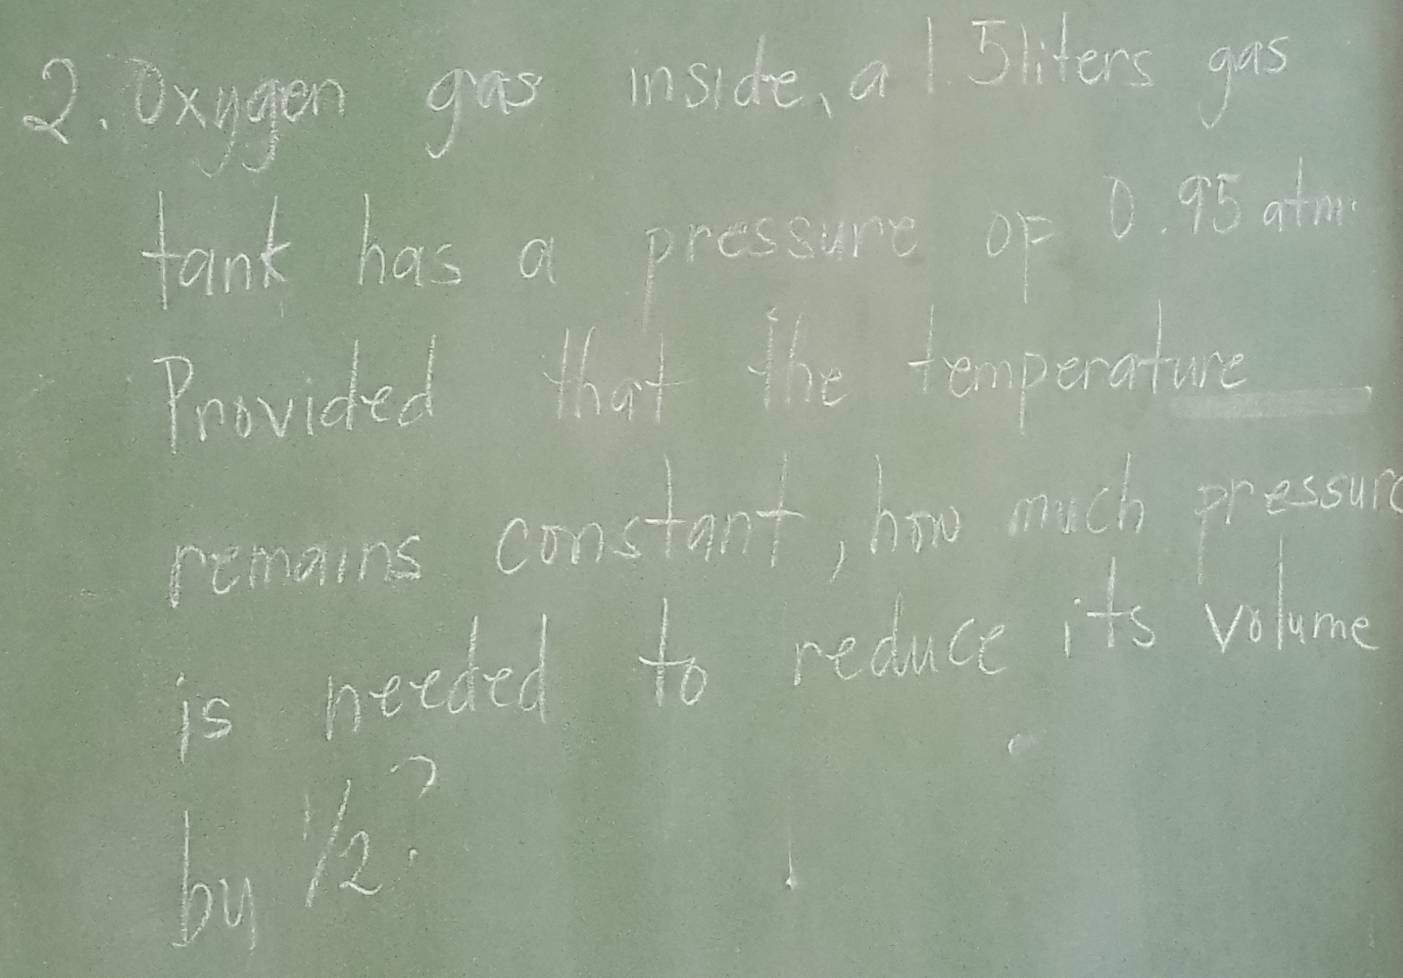 2. Oxygen gas inside, a 1.5 liters gas
tank has a pressure of 0.95 atm.
Provided that the temperature
remains constant, how much pressure
is needed to reduce its volume
by 1/2?